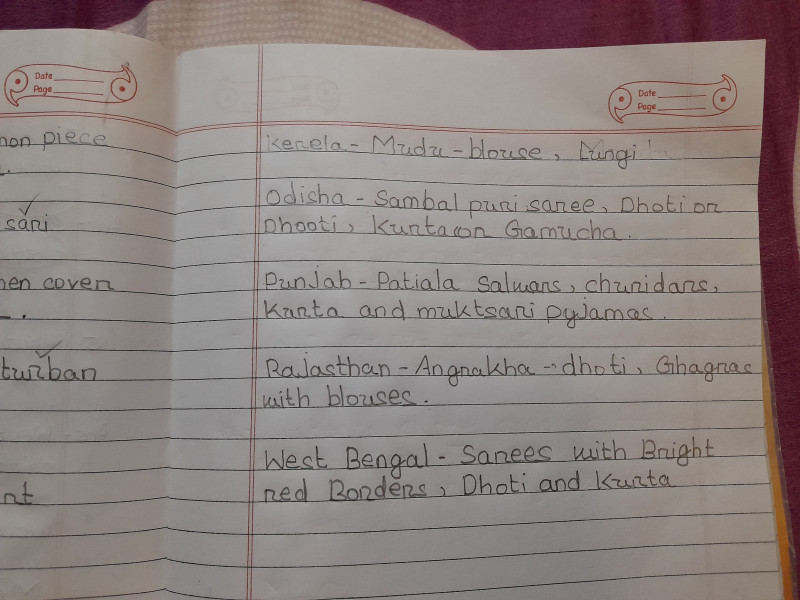 Date
Page
non piece
sari
en coven
turban
nt
Date
Page
Kerela - Mudu - blouse, Lungi
Odisha - Sambal puri saree, Dhoti or
Dhooti, Kurta or Gamucha.
Punjab - Patiala Salwars, churidars,
Kurta and muktsari pyjamas.
Rajasthan - Angrakha - dhoti, Ghagras
with blouses.
West Bengal - Sarees with Bright
red Borders, Dhoti and Kurta